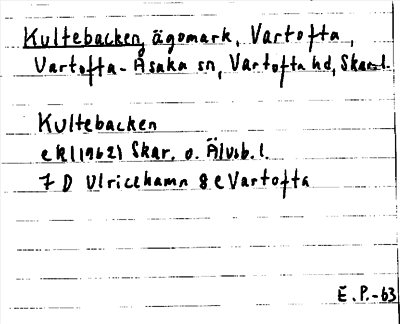 Kultebacken, ägomark, Vartofta,
Vartofta-Åsaka sn, Vartofta hd, Skar.l.
Kultebacken
ek (1962) Skar. o. Älvsb. l.
7 D Ulricehamn 8 e Vartofta
E.P.-63